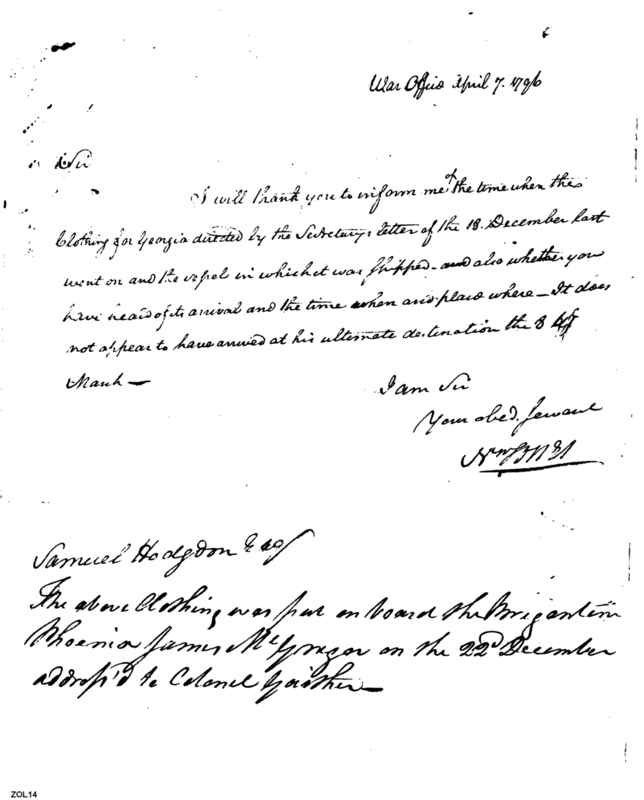 6
War Office April 7. 1796
Sir
I will thank you to inform me of the time when the
Clothing for Georgia directed by the Secretarys letter of the 18. December last
went on and the vessel in which it was shipped - and also whether you
have heard of its arrival and the time when and place where - It does
not appear to have arrived at his ultimate destination the 8
March —
I am Sir
Your obed. Servant
Samuel Hodgdon Esq
The above Clothing was put on board the Brigantine
Phoenix James McGregor on the 22d December
address'd to Colonel Gaither —
ZOL14